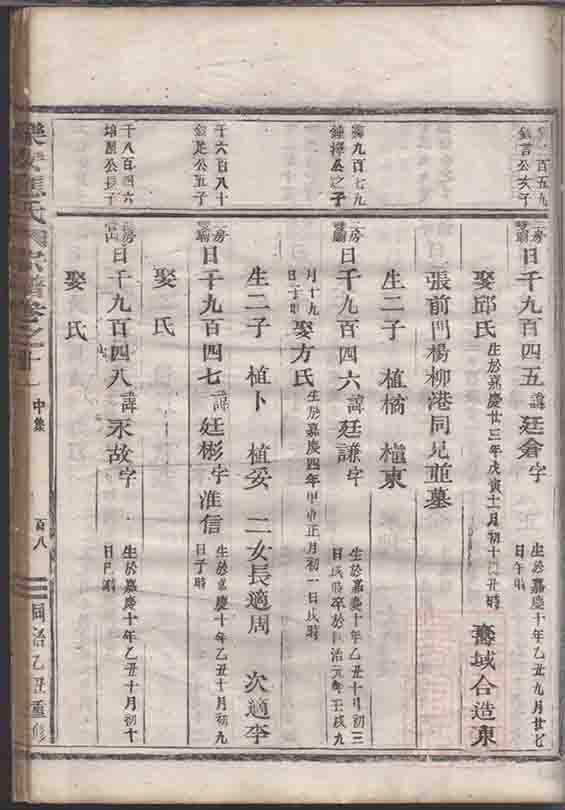 百五九
公次子
房
日千九百四五 諱廷倉字 生於嘉慶十年乙丑九月廿七日午時
娶邱氏 生於嘉慶廿三年戊寅十一月初十日丑時 壽域合造東
張前門楊柳港同兄並墓
生二子 植橘 植東
九百七九
公之子
房
日千九百四六 諱廷謙字 生於嘉慶十年乙丑十月初三日戌時卒於同治元年壬戌九
月十九日 娶方氏 生於嘉慶四年 正月初一日戌時
生二子 植卜 植妥 二女長適周 次適李
千六百八十
公五子
房
日千九百四七 諱廷彬字淮信 生於嘉慶十年乙丑十月初九日子時
娶 氏
千八百四六
公長子
房
日千九百四八 諱永故字 生於嘉慶十年乙丑十月初十日巳時
娶 氏
樂安 氏宗譜卷之 中集 百八 同治乙丑重修